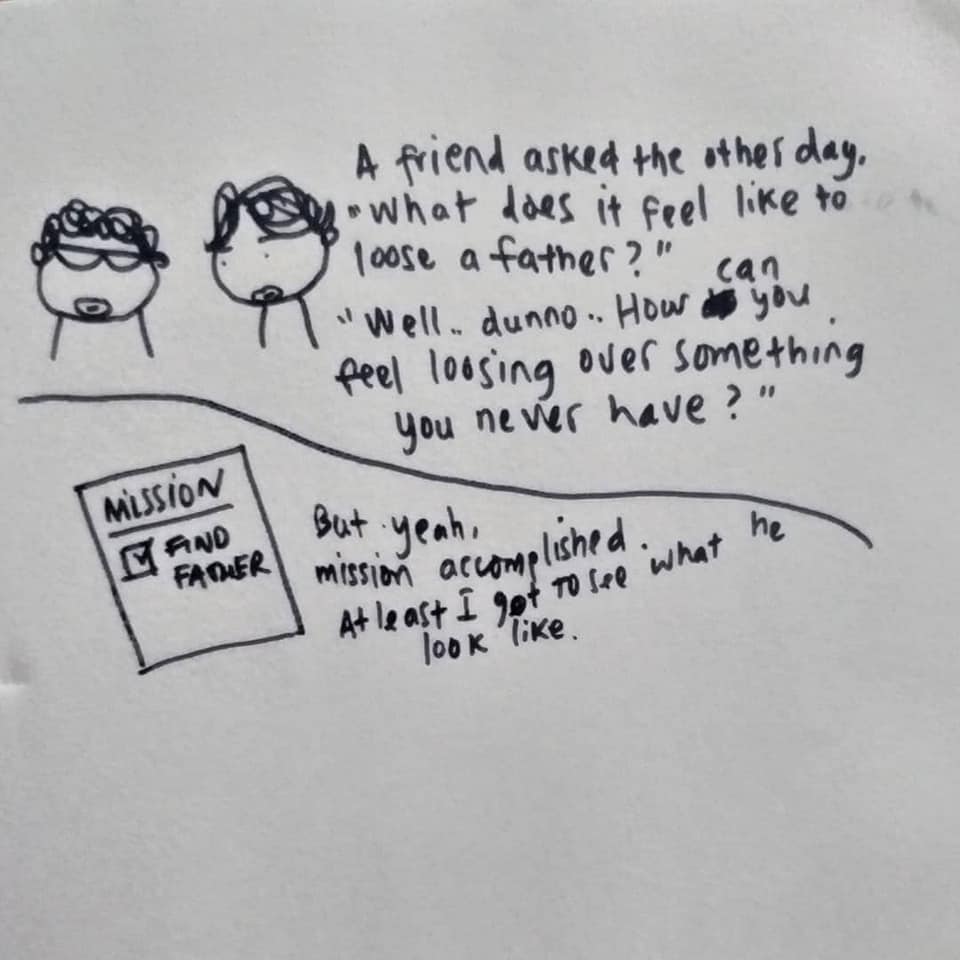 A friend asked the other day.
"What does it feel like to
loose a father?"
"Well.. dunno.. How can you
feel loosing over something
you never have?"
MISSION
FIND
FATHER
But yeah,
mission accomplished.
At least I got to see what he
look like.